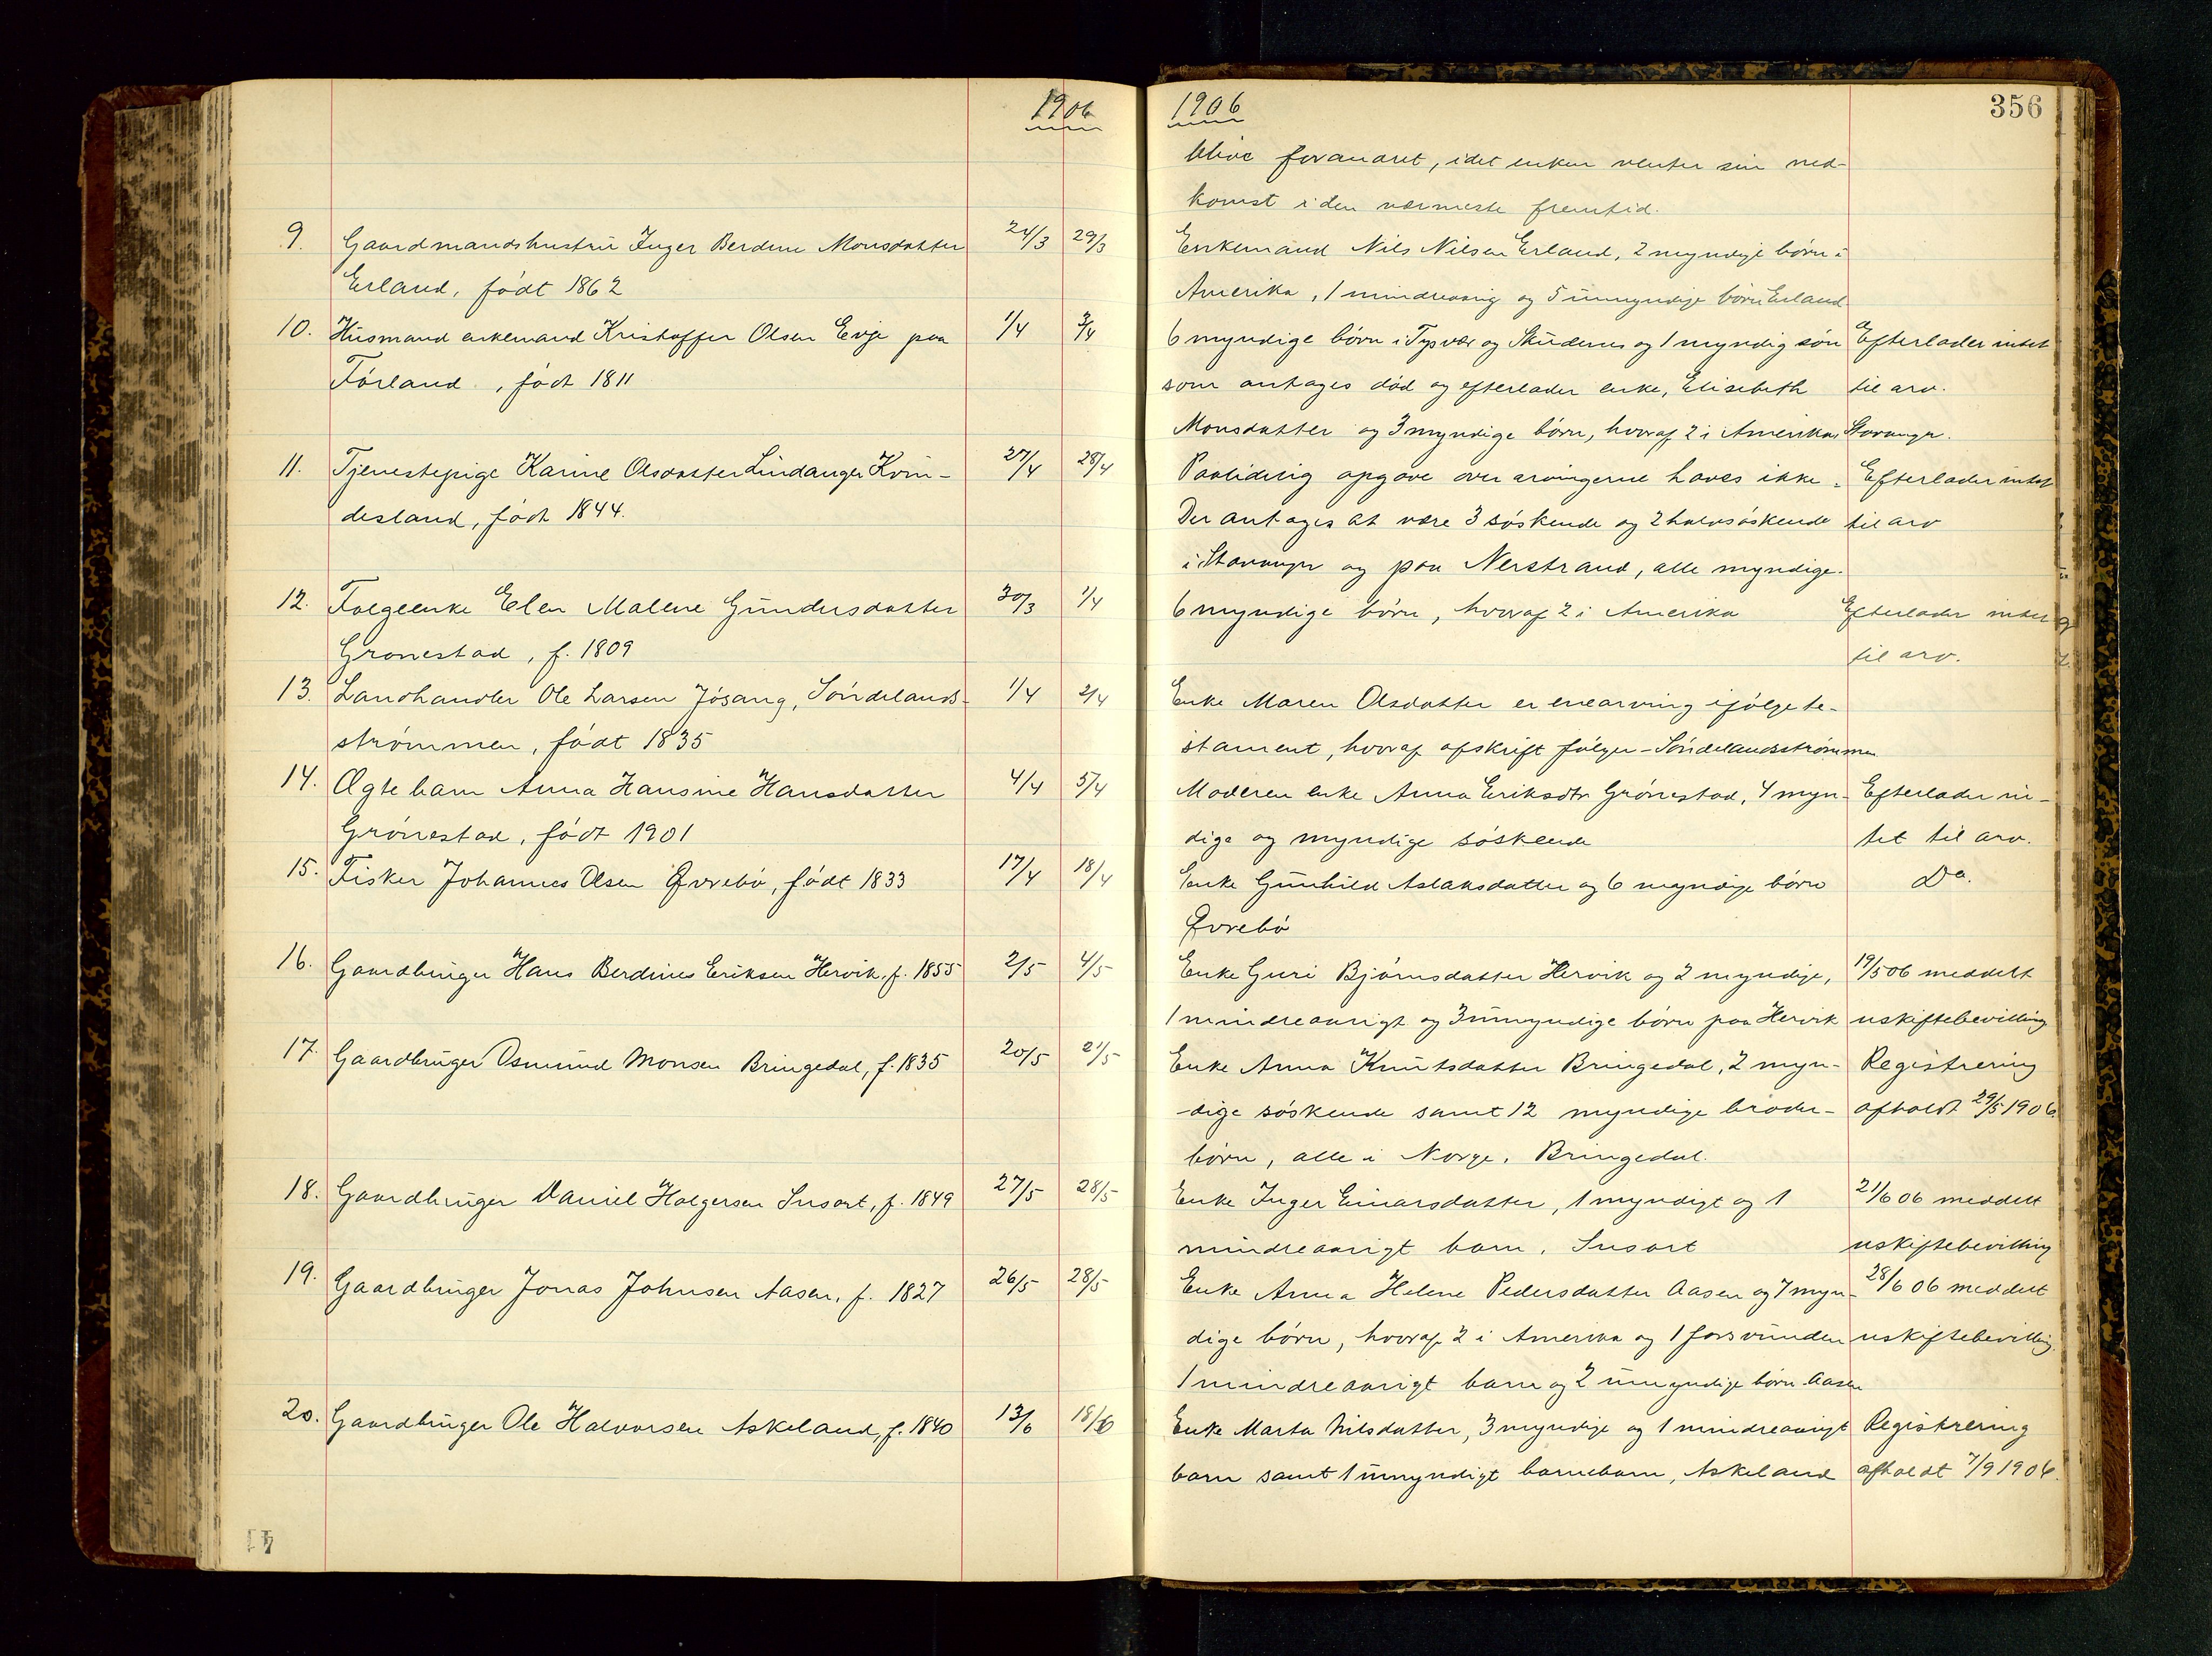 1906
9. Gaardmandshustru Inger Berdine Monsdatter 24/3 29/3
Erland, født 1862
10. Husmand enkemand Kristoffer Olsen Evje paa 1/4 3/4
Førland, født 1811
11. Tjenestepige Karine Olsdatter Lindanger Kvin- 27/4 28/4
desland, født 1844.
12. Folgeenke Elen Malene Gundersdatter 30/3 1/4
Gronestad, f. 1809
13. Landhandler Ole Larsen Jøsang, Søndelands- 1/4 2/4
strømmen, født 1835
14. Ægte barn Anna Hansine Hansdatter 4/4 5/4
Grønestad, født 1901
15. Fisker Johannes Olsen Øvrebø, født 1833 17/4 18/4
16. Gaardbruger Hans Berdines Eriksen Hervik, f. 1855 2/5 4/5
17. Gaardbruger Osmund Monsen Bringedal, f. 1835 20/5 21/5
18. Gaardbruger Daniel Holgersen Susort, f. 1849 27/5 28/5
19. Gaardbruger Jonas Johnsen Aasen, f. 1827 26/5 28/5
20. Gaardbruger Ole Halvorsen Askeland, f. 1840 13/6 18/6
1906
356
blive forandret, idet enken venter sin ned-
komst i den nærmeste fremtid.
Enkemand Nils Nilsen Erland, 2 myndige børn i
Amerika, 1 mindreaarig og 5 umyndige børn Erland
6 myndige børn i Tysvær og Skudenes og 1 myndig søn Efterlader intet
som antages død og efterlader enke, Elisebeth til arv.
Monsdatter og 3 myndige børn, hvoraf 2 i Amerika Stavanger.
Paalidelig opgave over arvingerne haves ikke. Efterlader intet
Der antages at være 3 søskende og 2 halvsøskende til arv
i Stavanger og paa Nerstrand, alle myndige.
6 myndige børn, hvoraf 2 i Amerika Efterlader intet
til arv.
Enke Maren Olsdatter er enearving ifølge te-
stament, hvoraf afskrift følger - Søndelandsstrømmen
Moderen enke Anna Eriksdtr Grønestad, 4 myn- Efterlader in-
dige og myndige søskende tet til arv.
Enke Gunhild Aslaksdatter og 6 myndige børn Do.
Øvrebø
Enke Guri Bjørnsdatter Hervik og 2 myndige, 19/5 06 meddelt
1 mindreaarigt og 3 umyndige børn paa Hervik uskiftebevilling
Enke Anna Knutsdatter Bringedal, 2 myn- Registrering
dige søskende samt 12 myndige broder- afholdt 29/5 1906.
børn, alle i Norge. Bringedal.
Enke Inger Einarsdatter, 1 myndigt og 1 21/6 06 meddelt
mindreaarigt barn. Susort uskiftebevilling
Enke Anna Helene Pedersdatter Aasen og 7 myn- 28/6 06 meddelt
dige børn, hvoraf 2 i Amerika og 1 forsvunden uskiftebevilling.
1 mindreaarigt barn og 2 umyndige børn Aasen
Enke Marta Nilsdatter, 3 myndige og 1 mindreaarigt Registrering
barn samt 1 umyndigt barnebarn, Askeland afholdt 7/9 1906.